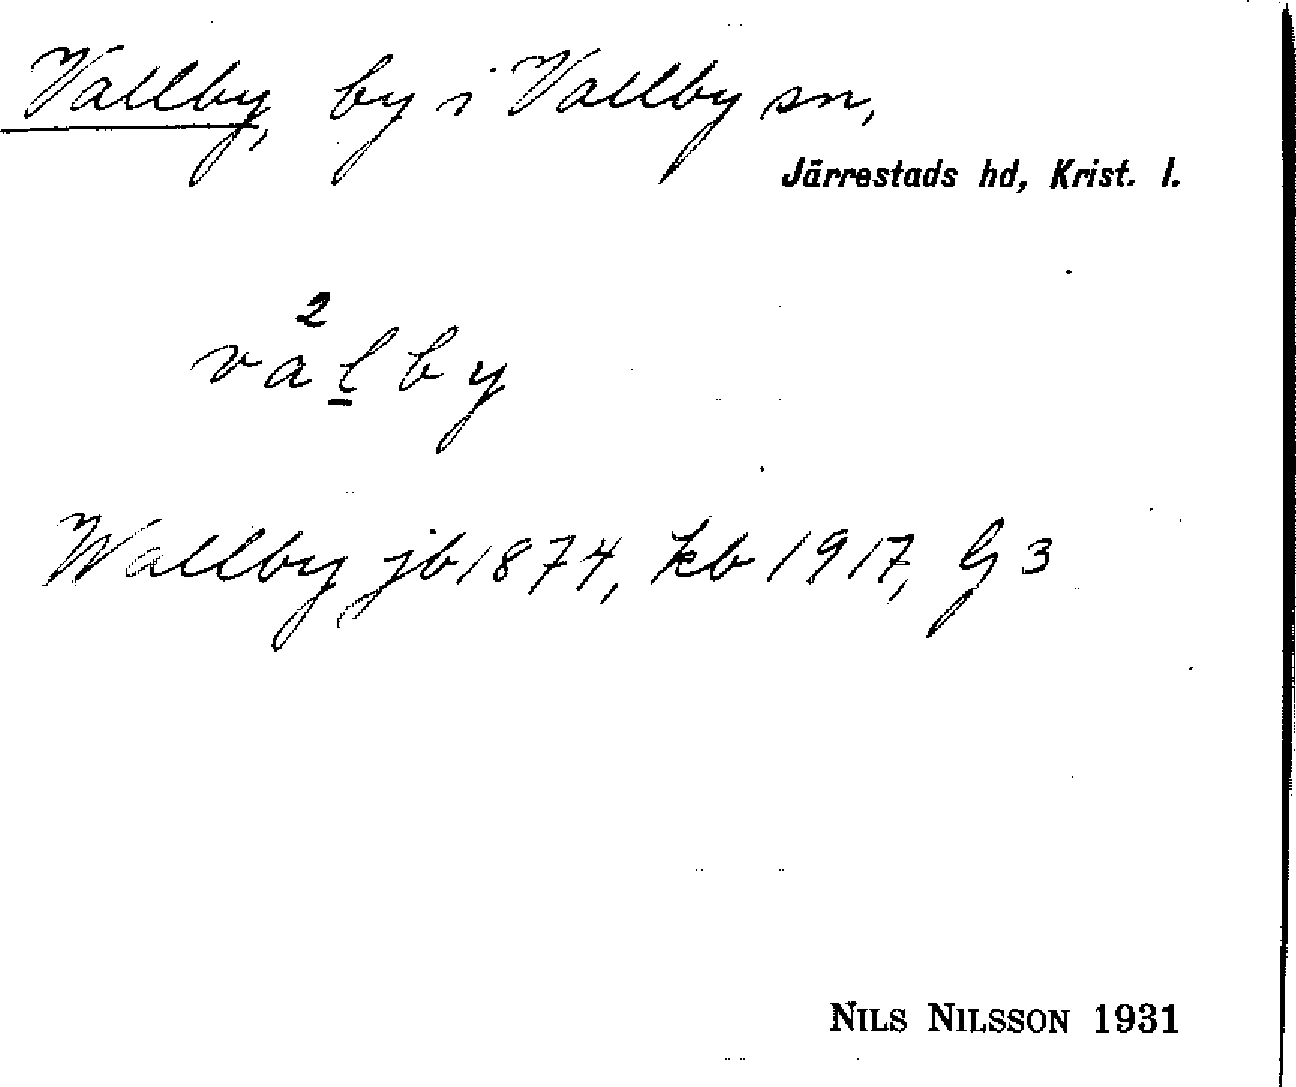 Vallby, by i Vallby sn,
Järrestads hd, Krist. l.
2
val̲by
Wallby jb 1874, kb 1917, G 3
NILS NILSSON 1931